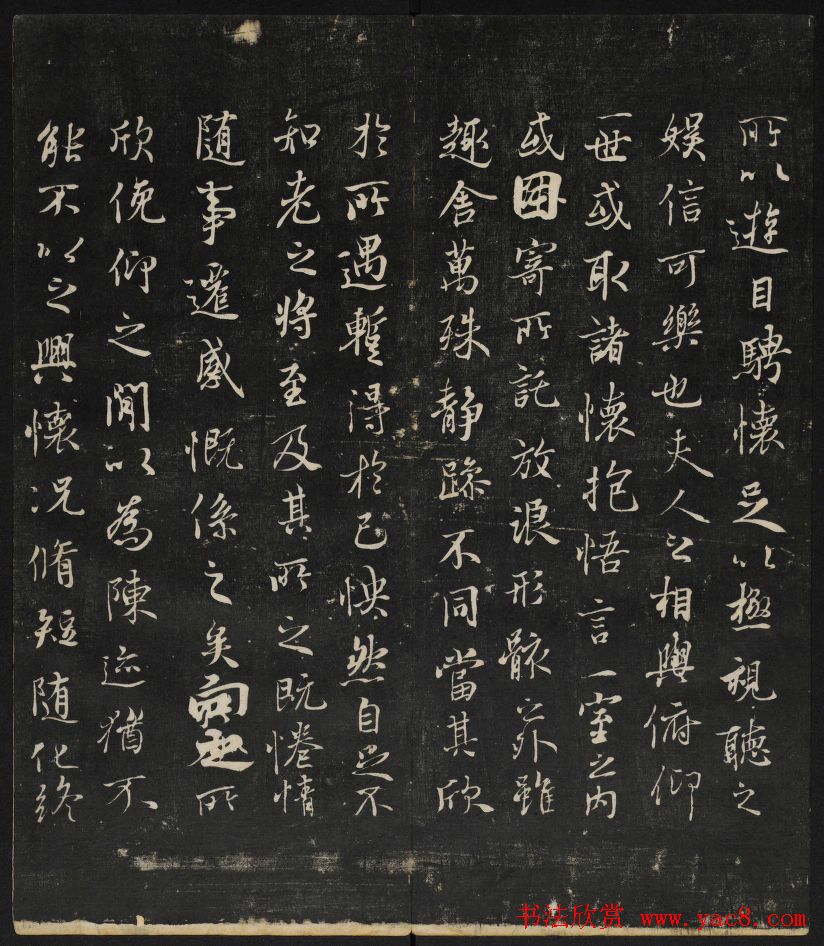 所以遊目騁懷足以極視聽之
娛信可樂也夫人之相與俯仰
一世或取諸懷抱悟言一室之内
或因寄所託放浪形骸之外雖
趣舍萬殊静躁不同當其欣
於所遇暫得於己怏然自足不
知老之將至及其所之既惓情
随事遷感慨係之矣向之所
欣俛仰之閒以為陳迹猶不
能不以之興懷况脩短随化終
书法欣赏 www.yac8.com